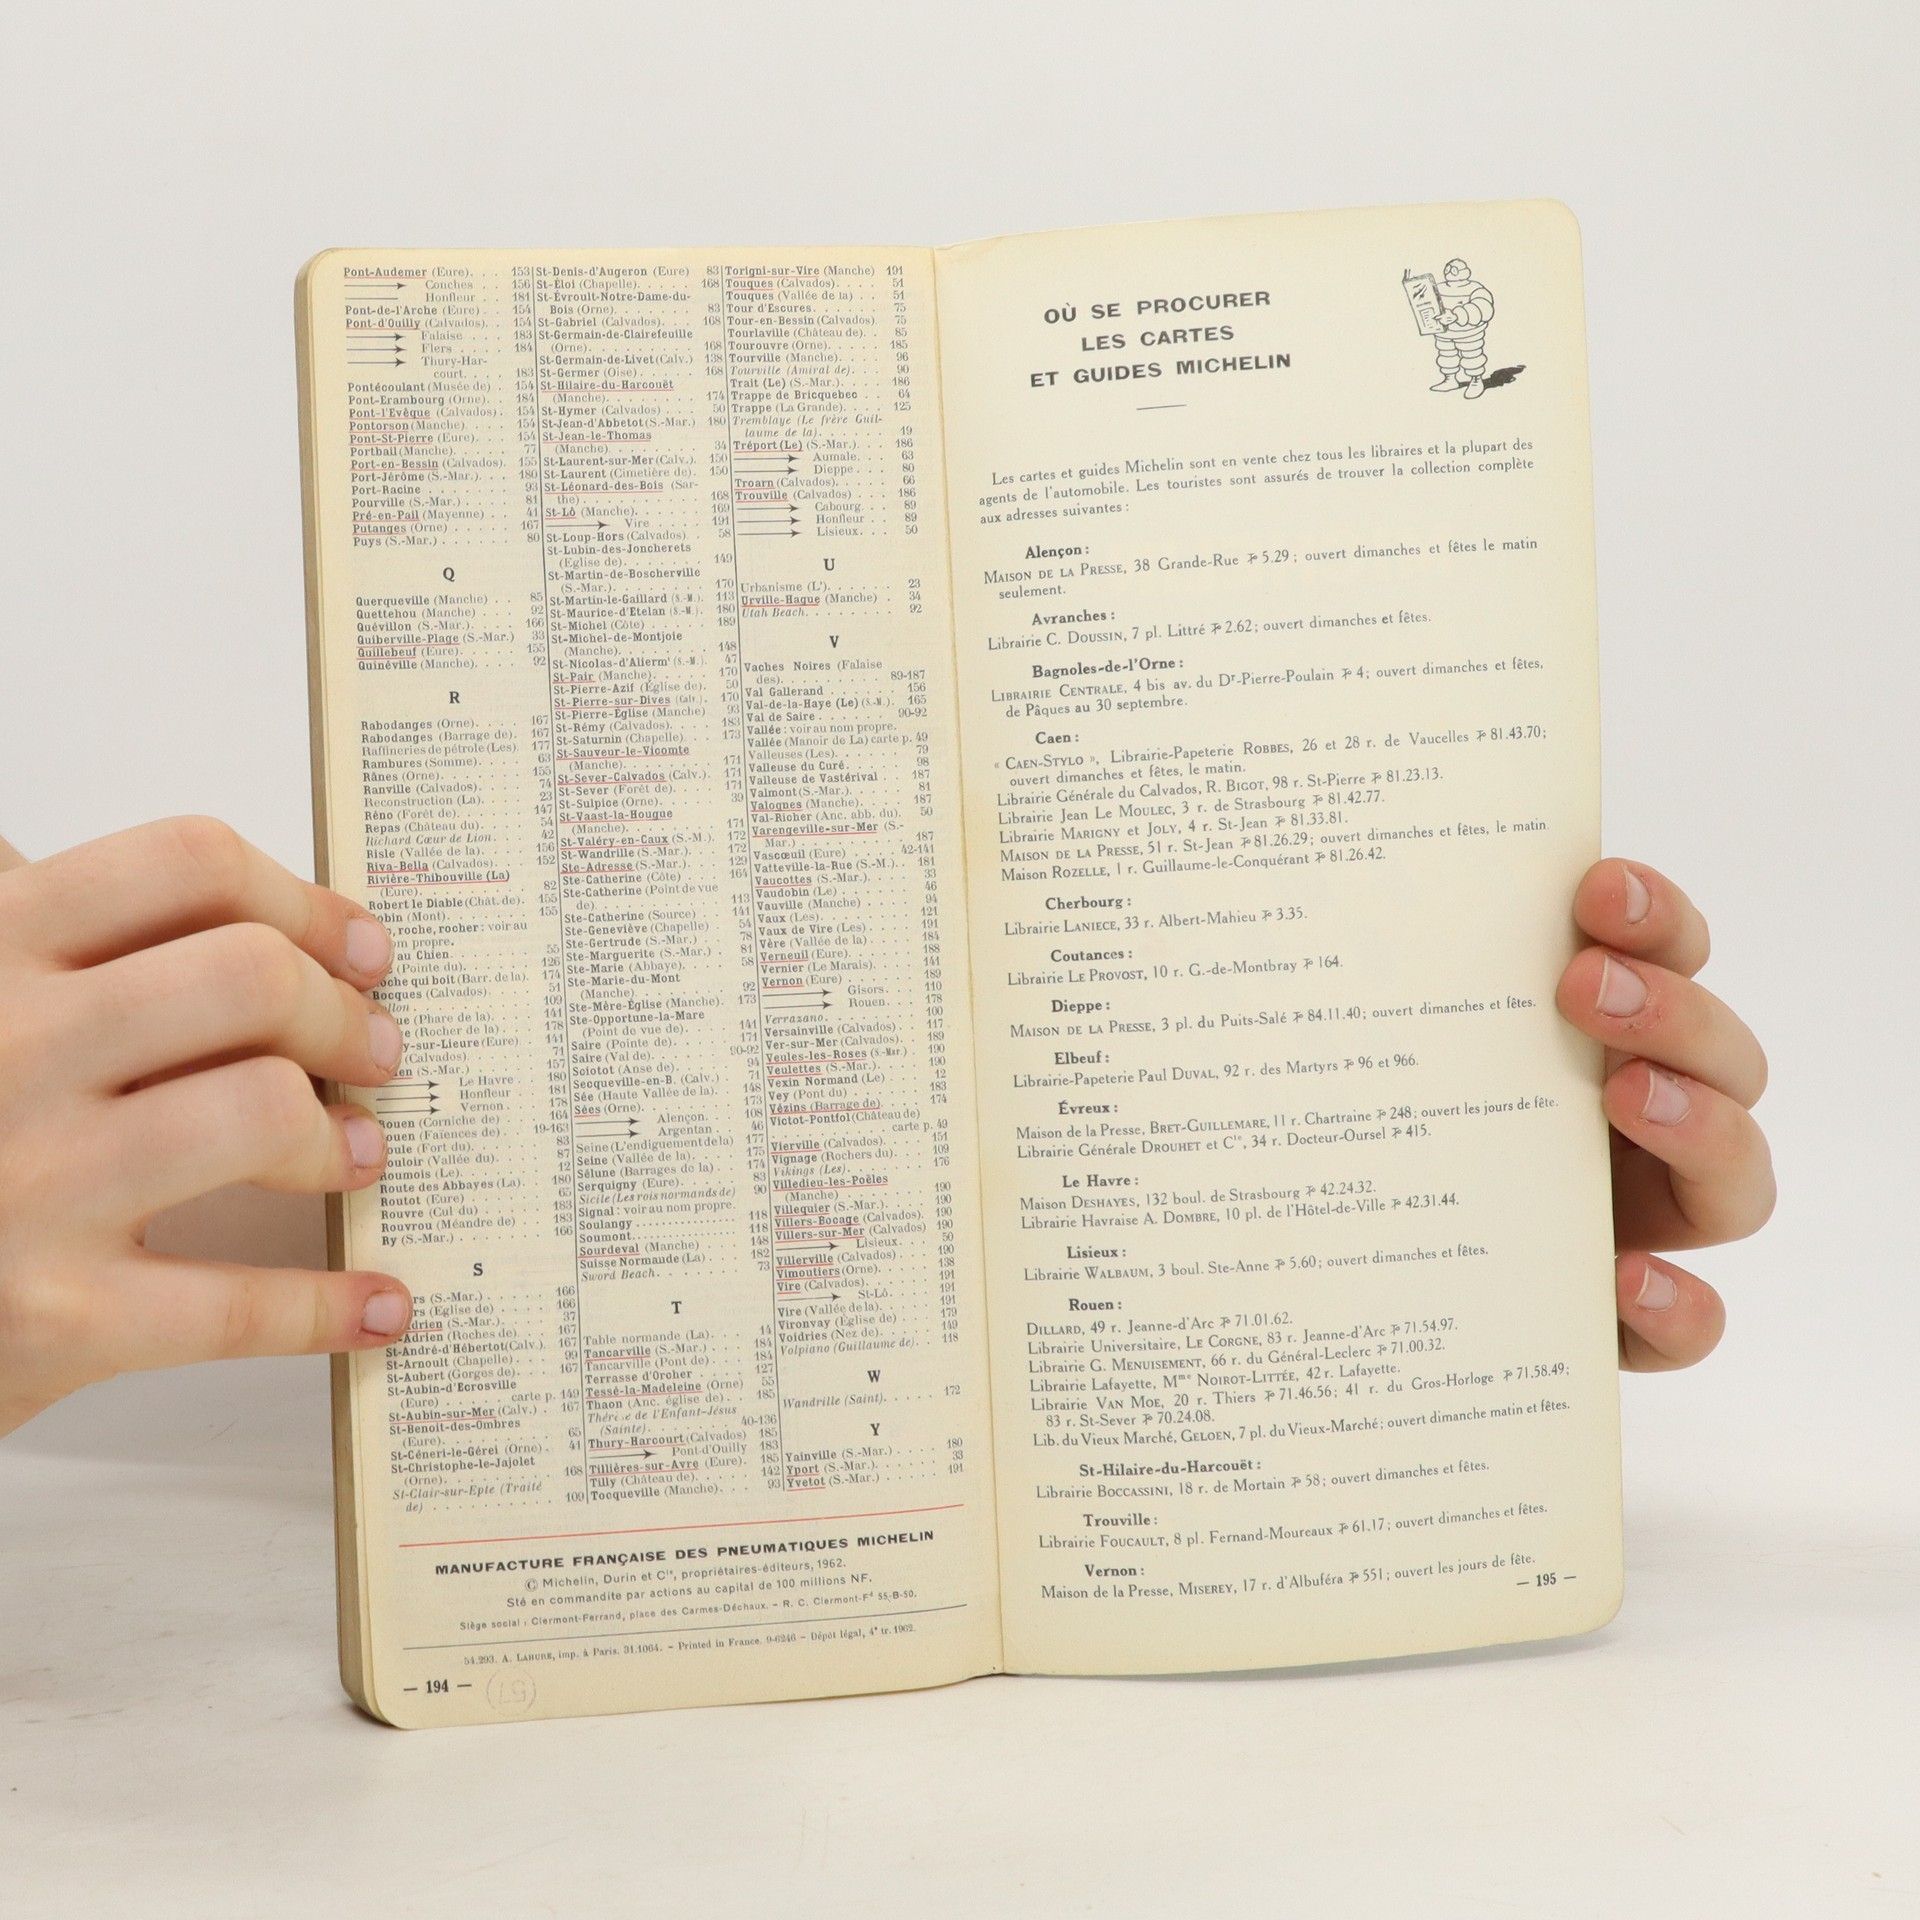 Pont-Audemer (Eure). . . 153
Conches . . 156
Honfleur . . 181
Pont-de-l'Arche (Eure) . . 154
Pont-d'Ouilly (Calvados). . 154
Falaise . . . 183
Flers . . . . 184
Thury-Har-
court. . . . 183
Pontécoulant (Musée de) . 154
Pont-Erambourg (Orne). . 184
Pont-l'Evêque (Calvados). . 154
Pontorson (Manche). . . . 154
Pont-St-Pierre (Eure). . . 154
Portbail (Manche). . . . . 77
Port-en-Bessin (Calvados). 155
Port-Jérôme (S.-Mar.). . . 180
Port-Racine . . . . . . . 93
Pourville (S.-Mar.) . . . . 81
Pré-en-Pail (Mayenne) . . 41
Putanges (Orne) . . . . . 167
Puys (S.-Mar.) . . . . . . 80
Q
Querqueville (Manche) . . 85
Quettehou (Manche) . . . 92
Quévillon (S.-Mar.). . . . 166
Quiberville-Plage (S.-Mar.) 33
Quillebeuf (Eure). . . . . 155
Quinéville (Manche). . . . 92
R
Rabodanges (Orne). . . . 167
Rabodanges (Barrage de). 167
Raffineries de pétrole (Les). 177
Rambures (Somme). . . . 63
Rânes (Orne). . . . . . . 155
Ranville (Calvados). . . . 74
Reconstruction (La). . . . 23
Réno (Forêt de). . . . . . 147
Repas (Château du). . . . 54
Richard Cœur de Lion. . . 42
Risle (Vallée de la). . . . 156
Riva-Bella (Calvados). . . 152
Rivière-Thibouville (La)
(Eure). . . . . . . . . 82
Robert le Diable (Chât. de). 155
obin (Mont). . . . . . . 155
, roche, rocher : voir au
om propre.
au Chien. . . . . . . 55
(Pointe du). . . . . . 126
oche qui boit (Barr. de la). 174
Rocques (Calvados). . . . 51
ollon. . . . . . . . . 109
ue (Phare de la). . . . 141
e (Rocher de la) . . . 178
y-sur-Lieure (Eure). 141
(Calvados). . . . . . 71
en (S.-Mar.) . . . . . . 157
Le Havre . . 180
Honfleur . . 181
Vernon. . . 178
Rouen (Corniche de) . . . 164
ouen (Faïences de) . . 19-163
oule (Fort du). . . . . . 83
ouloir (Vallée du). . . . 87
Roumois (Le). . . . . . . 12
Route des Abbayes (La). . 180
Routot (Eure) . . . . . . 65
Rouvre (Cul du) . . . . . 183
Rouvrou (Méandre de) . . 183
Ry (S.-Mar.) . . . . . . . 166
S
rs (S.-Mar.) . . . . . 166
rs (Église de) . . . . . 166
Adrien (S.-Mar.). . . . 37
St-Adrien (Roches de). . . 167
St-André-d'Hébertot (Calv.). 167
St-Arnoult (Chapelle). . . 99
St-Aubert (Gorges de). . . 167
St-Aubin-d'Ecrosville
(Eure) . . . . . carte p. 149
St-Aubin-sur-Mer (Calv.) . 167
St-Benoit-des-Ombres
(Eure). . . . . . . . . 65
St-Céneri-le-Gérei (Orne). 41
St-Christophe-le-Jajolet
(Orne). . . . . . . . . 168
St-Clair-sur-Epte (Traité
de) . . . . . . . . . . 109
St-Denis-d'Augeron (Eure) 83
St-Éloi (Chapelle). . . . . 168
St-Évroult-Notre-Dame-du-
Bois (Orne). . . . . . . 83
St-Gabriel (Calvados). . . 168
St-Germain-de-Clairefeuille
(Orne). . . . . . . . . 168
St-Germain-de-Livet (Calv.) 138
St-Germer (Oise). . . . . 168
St-Hilaire-du-Harcouët
(Manche). . . . . . . . 174
St-Hymer (Calvados) . . . 50
St-Jean-d'Abbetot (S.-Mar.) 180
St-Jean-le-Thomas
(Manche). . . . . . . . 34
St-Laurent-sur-Mer (Calv.). 150
St-Laurent (Cimetière de). 150
St-Léonard-des-Bois (Sar-
the). . . . . . . . . . 168
St-Lô (Manche). . . . . . 169
Vire . . . . 191
St-Loup-Hors (Calvados). . 58
St-Lubin-des-Joncherets
(Église de). . . . . . . 149
St-Martin-de-Boscherville
(S.-Mar.). . . . . . . . 170
St-Martin-le-Gaillard (S.-M.). 113
St-Maurice-d'Etelan (S.-M.). 180
St-Michel (Côte) . . . . . 189
St-Michel-de-Montjoie
(Manche). . . . . . . . 148
St-Nicolas-d'Alierm^t (S.-M.). 47
St-Pair (Manche). . . . . 170
St-Pierre-Azif (Église de). 50
St-Pierre-sur-Dives (Calv.). 170
St-Pierre-Église (Manche) 93
St-Rémy (Calvados). . . . 183
St-Saturnin (Chapelle). . . 173
St-Sauveur-le-Vicomte
(Manche). . . . . . . . 171
St-Sever-Calvados (Calv.). 171
St-Sever (Forêt de). . . . 171
St-Sulpice (Orne). . . . . 39
St-Vaast-la-Hougue
(Manche). . . . . . . . 171
St-Valéry-en-Caux (S.-M.). 172
St-Wandrille (S.-Mar.). . . 172
Ste-Adresse (S.-Mar.). . . 129
Ste-Catherine (Côte) . . . 164
Ste-Catherine (Point de vue
de). . . . . . . . . . . 113
Ste-Catherine (Source) . . 141
Ste-Geneviève (Chapelle) . 54
Ste-Gertrude (S.-Mar.) . . 78
Ste-Marguerite (S.-Mar.) . 81
Ste-Marie (Abbaye). . . . 58
Ste-Marie-du-Mont
(Manche). . . . . . . . 92
Ste-Mère-Église (Manche). 173
Ste-Opportune-la-Mare
(Point de vue de). . . . 141
Saire (Pointe de). . . . . 171
Saire (Val de). . . . . . 90-92
Sciotot (Anse de). . . . . 94
Secqueville-en-B. (Calv.) . 71
Sée (Haute Vallée de la). . 148
Sées (Orne). . . . . . . . 173
Alençon. . . 108
Argentan . . 46
Seine (L'endiguement de la) 177
Seine (Vallée de la). . . . 175
Sélune (Barrages de la) . . 174
Serquigny (Eure). . . . . 83
Sicile (Les rois normands de) 90
Signal : voir au nom propre.
Soulangy . . . . . . . . 118
Soumont. . . . . . . . . 118
Sourdeval (Manche) . . . 148
Suisse Normande (La) . . 182
Sword Beach. . . . . . . 73
T
Table normande (La). . . 14
Tancarville (S.-Mar.) . . . 184
Tancarville (Pont de) . . . 184
Terrasse d'Orcher . . . . 127
Tessé-la-Madeleine (Orne) 55
Thaon (Anc. église de). . . 185
Thérèse de l'Enfant-Jésus
(Sainte). . . . . . . 40-136
Thury-Harcourt (Calvados) 185
Pont-d'Ouilly 183
Tillières-sur-Avre (Eure). 185
Tilly (Château de). . . . . 142
Tocqueville (Manche). . . 93
Torigni-sur-Vire (Manche) 191
Touques (Calvados). . . . 51
Touques (Vallée de la) . . 51
Tour d'Escures. . . . . . 75
Tour-en-Bessin (Calvados) 75
Tourlaville (Château de). . 85
Tourouvre (Orne). . . . . 185
Tourville (Manche). . . . 96
Tourville (Amiral de). . . 90
Trait (Le) (S.-Mar.). . . . 186
Trappe de Bricquebec . . 64
Trappe (La Grande). . . . 125
Tremblaye (Le frère Guil-
laume de la). . . . . . . 19
Tréport (Le) (S.-Mar.). . . 186
Aumale. . . 63
Dieppe. . . 80
Troarn (Calvados). . . . . 66
Trouville (Calvados) . . . 186
Cabourg. . . 89
Honfleur . . 89
Lisieux. . . 50
U
Urbanisme (L'). . . . . . 23
Urville-Hague (Manche) . 34
Utah Beach. . . . . . . . 92
V
Vaches Noires (Falaise
des). . . . . . . . . 89-187
Val Gallerand . . . . . . 156
Val-de-la-Haye (Le) (S.-M.). 165
Val de Saire . . . . . . 90-92
Vallée : voir au nom propre.
Vallée (Manoir de La) carte p. 49
Valleuses (Les). . . . . . 79
Valleuse du Curé. . . . . 98
Valleuse de Vastérival . . 187
Valmont (S.-Mar.). . . . . 81
Valognes (Manche). . . . 187
Val-Richer (Anc. abb. du). 50
Varengeville-sur-Mer (S.-
Mar.) . . . . . . . . . 187
Vascœuil (Eure) . . . . 42-141
Vatteville-la-Rue (S.-M.). . 181
Vaucottes (S.-Mar.). . . . 33
Vaudobin (Le) . . . . . . 46
Vauville (Manche) . . . . 94
Vaux (Les). . . . . . . . 121
Vaux de Vire (Les). . . . 191
Vère (Vallée de la) . . . . 184
Verneuil (Eure). . . . . . 188
Vernier (Le Marais). . . . 141
Vernon (Eure) . . . . . . 189
Gisors. . . 110
Rouen. . . 178
Verrazano. . . . . . . . 100
Versainville (Calvados). . 117
Ver-sur-Mer (Calvados). . 189
Veules-les-Roses (S.-Mar.) . 190
Veulettes (S.-Mar.). . . . 190
Vexin Normand (Le) . . . 12
Vey (Pont du) . . . . . . 183
Vézins (Barrage de). . . . 174
Victot-Pontfol (Château de)
. . . . . . . . carte p. 49
Vierville (Calvados). . . . 151
Vignage (Rochers du). . . 109
Vikings (Les). . . . . . . 176
Villedieu-les-Poëles
(Manche) . . . . . . . . 190
Villequier (S.-Mar.) . . . 190
Villers-Bocage (Calvados). 190
Villers-sur-Mer (Calvados) 190
Lisieux. . . 50
Villerville (Calvados) . . . 190
Vimoutiers (Orne). . . . . 138
Vire (Calvados). . . . . . 191
St-Lô. . . . 191
Vire (Vallée de la). . . . . 191
Vironvay (Église de) . . . 179
Voidries (Nez de). . . . . 149
Volpiano (Guillaume de). . 118
W
Wandrille (Saint). . . . . 172
Y
Yainville (S.-Mar.) . . . . 180
Yport (S.-Mar.) . . . . . . 33
Yvetot (S.-Mar.) . . . . . 191
MANUFACTURE FRANÇAISE DES PNEUMATIQUES MICHELIN
© Michelin, Durin et Cie, propriétaires-éditeurs, 1962.
Sté en commandite par actions au capital de 100 millions NF.
Siège social : Clermont-Ferrand, place des Carmes-Déchaux. – R. C. Clermont-Fd 55-B-50.
54.293. A. LAHURE, imp. à Paris. 31.1064. – Printed in France. 9-6246 – Dépôt légal, 4e tr. 1962.
— 194 —
(57)
OÙ SE PROCURER
LES CARTES
ET GUIDES MICHELIN
Les cartes et guides Michelin sont en vente chez tous les libraires et la plupart des
agents de l'automobile. Les touristes sont assurés de trouver la collection complète
aux adresses suivantes :
Alençon :
MAISON DE LA PRESSE, 38 Grande-Rue ☎ 5.29 ; ouvert dimanches et fêtes le matin
seulement.
Avranches :
Librairie C. DOUSSIN, 7 pl. Littré ☎ 2.62 ; ouvert dimanches et fêtes.
Bagnoles-de-l'Orne :
LIBRAIRIE CENTRALE, 4 bis av. du Dr-Pierre-Poulain ☎ 4 ; ouvert dimanches et fêtes,
de Pâques au 30 septembre.
Caen :
« CAEN-STYLO », Librairie-Papeterie ROBBES, 26 et 28 r. de Vaucelles ☎ 81.43.70 ;
ouvert dimanches et fêtes, le matin.
Librairie Générale du Calvados, R. BIGOT, 98 r. St-Pierre ☎ 81.23.13.
Librairie Jean LE MOULEC, 3 r. de Strasbourg ☎ 81.42.77.
Librairie MARIGNY et JOLY, 4 r. St-Jean ☎ 81.33.81.
MAISON DE LA PRESSE, 51 r. St-Jean ☎ 81.26.29 ; ouvert dimanches et fêtes, le matin
Maison ROZELLE, 1 r. Guillaume-le-Conquérant ☎ 81.26.42.
Cherbourg :
Librairie LANIECE, 33 r. Albert-Mahieu ☎ 3.35.
Coutances :
Librairie LE PROVOST, 10 r. G.-de-Montbray ☎ 164.
Dieppe :
MAISON DE LA PRESSE, 3 pl. du Puits-Salé ☎ 84.11.40 ; ouvert dimanches et fêtes.
Elbeuf :
Librairie-Papeterie Paul DUVAL, 92 r. des Martyrs ☎ 96 et 966.
Évreux :
Maison de la Presse, BRET-GUILLEMARE, 11 r. Chartraine ☎ 248 ; ouvert les jours de fête.
Librairie Générale DROUHET et Cie, 34 r. Docteur-Oursel ☎ 415.
Le Havre :
Maison DESHAYES, 132 boul. de Strasbourg ☎ 42.24.32.
Librairie Havraise A. DOMBRE, 10 pl. de l'Hôtel-de-Ville ☎ 42.31.44.
Lisieux :
Librairie WALBAUM, 3 boul. Ste-Anne ☎ 5.60 ; ouvert dimanches et fêtes.
Rouen :
DILLARD, 49 r. Jeanne-d'Arc ☎ 71.01.62.
Librairie Universitaire, LE CORGNE, 83 r. Jeanne-d'Arc ☎ 71.54.97.
Librairie G. MENUISEMENT, 66 r. du Général-Leclerc ☎ 71.00.32.
Librairie Lafayette, Mme NOIROT-LITTÉE, 42 r. Lafayette.
Librairie VAN MOE, 20 r. Thiers ☎ 71.46.56 ; 41 r. du Gros-Horloge ☎ 71.58.49 ;
83 r. St-Sever ☎ 70.24.08.
Lib. du Vieux Marché, GELOEN, 7 pl. du Vieux-Marché ; ouvert dimanche matin et fêtes.
St-Hilaire-du-Harcouët :
Librairie BOCCASSINI, 18 r. de Mortain ☎ 58 ; ouvert dimanches et fêtes.
Trouville :
Librairie FOUCAULT, 8 pl. Fernand-Moureaux ☎ 61.17 ; ouvert dimanches et fêtes.
Vernon :
Maison de la Presse, MISEREY, 17 r. d'Albuféra ☎ 551 ; ouvert les jours de fête.
— 195 —